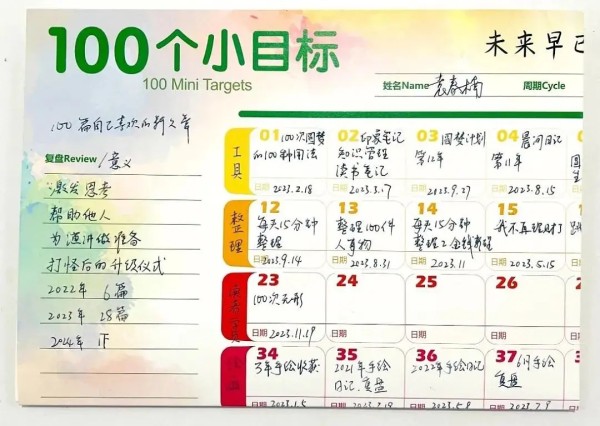 100个小目标
100 Mini Targets
未来早已
姓名Name 袁春楠
周期Cycle
100篇自己喜欢的新文章
复盘Review/意义
激发思考
帮助他人
为演讲做准备
打怪后的升级仪式
2022年 6篇
2023年 28篇
2024年
工具
01 100次圆梦
的100种用法
日期 2023.2.18
02 印象笔记
知识管理
读书笔记
日期 2023.3.17
03 圆梦计划
第12年
日期 2023.9.27
04 晨间日记
第11年
日期 2023.8.15
整理
12
每天15分钟
整理
日期 2023.9.14
13
整理100件
人事物
日期 2023.8.31
14
每天15分钟
整理2
日期 2023.11
15
我不再理财
日期 2023.5.15
23
100次无形
日期 2023.11.19
24
日期
25
日期
26
日期
34
3年手绘收获
2023.1.5
35
2021年手绘
日记.复盘
36
2022年手绘日记
2023.5.8
37 6月手绘
复盘